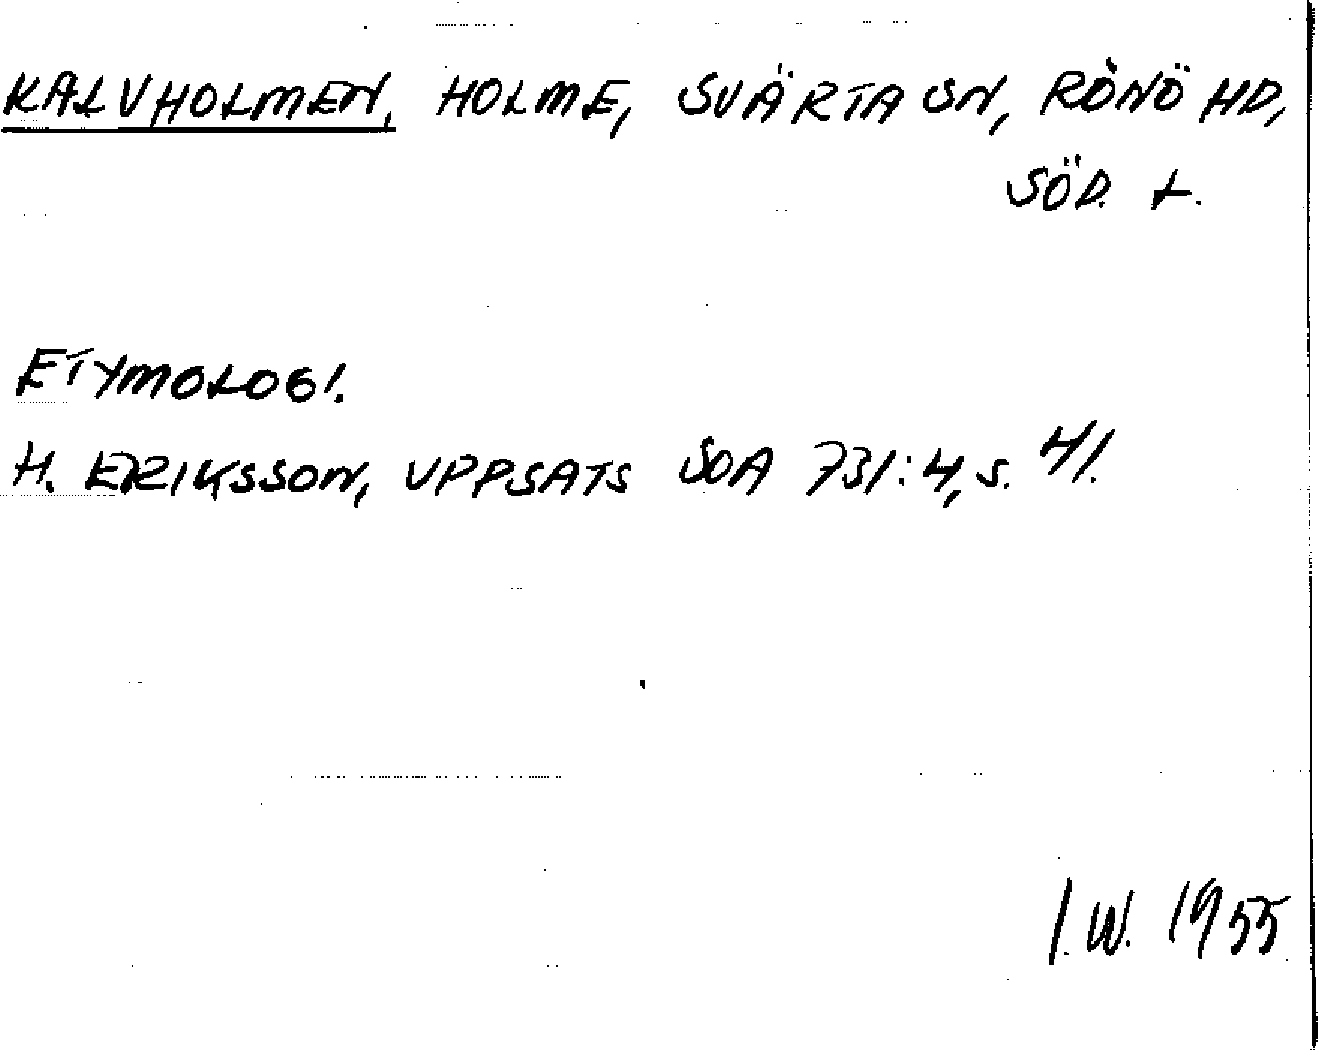 KALVHOLMEN, HOLME, SVÄRTA SN, RÖNÖ HD,
SÖD. L.
ETYMOLOGI.
H. ERIKSSON, UPPSATS SOA 731:4, S. 41.
I.W. 1955